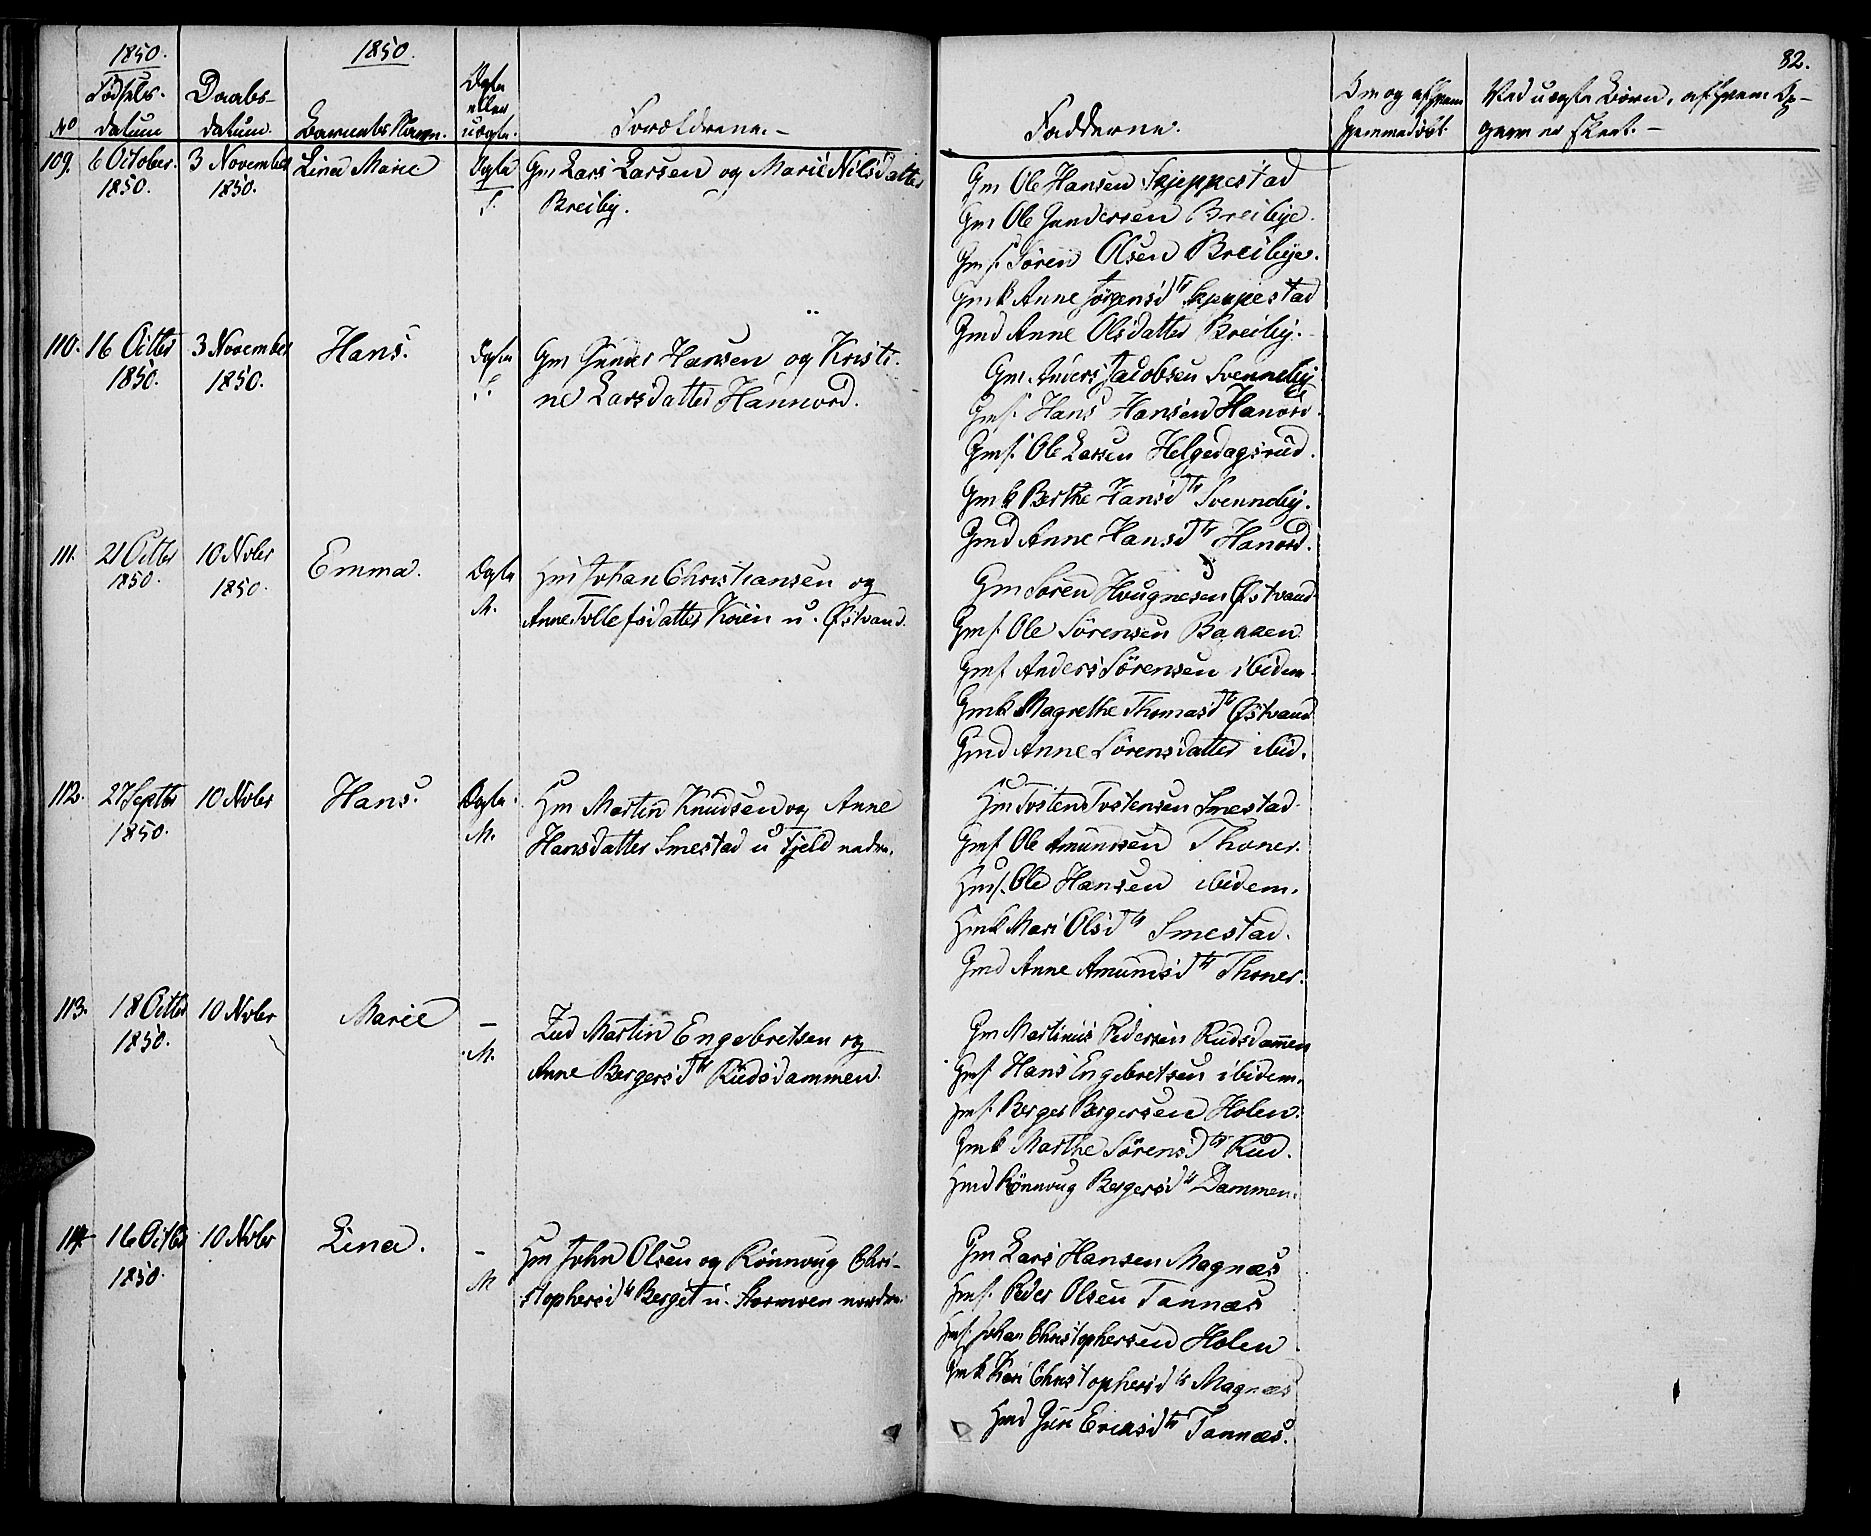 1850. 1850.
82.
No Fødsels- datum Daabs- datum. Barnets Navn. Ægte eller uægte. Forældrene.- Fadderne. Om og af hvem hjemmedøbt. Ved uægte Børn, af hvem An-
givn er skeet.-
109. 6 October 1850. 3 November 1850. Lina Marie Ægte Gm Lars Larsen og Marie Nilsdatter
Breiby.
Gm Ole Hansen Skjeppestad
Gm Ole Gundersen Breibye.
Gmf. Søren Olsen Breibye.
Gmk Anne Jørgensdtr Skjeppestad
Gmd Anne Olsdatter Breiby.
110. 16 Octbr 1850. 3 November 1850. Hans. Ægte Gm Gunder Hansen og Kristi-
ne Larsdatter Hannord.
Gm. Anders Jacobsen Svenneby
Gmf. Hans Hansen Hanord.
Gmf. Ole Larsen Helgedagsrud.
Gmk Berthe Hansdtr Svenneby.
Gmd Anne Hansdtr Hanord.
111. 21 Octbr 1850. 10 Novbr 1850. Emma. Ægte M. Hm Johan Christiansen og
Anne Tollefsdatter Koien u. Østvand.
Gm Søren Haugnesen Østvand
Gmf. Ole Sørensen Bakken
Gmf Anders Sørensen ibidem
Gmk Magrethe Thomasdtr Østvand
Gmd Anne Sørensdatter ibid.
112. 27 Septbr 1850. 10 Novbr Hans. Ægte M. Hm Martin Knudsen og Anne
Hansdatter Smestad u Fjeld nedre.
Hm Tosten Tostensen Smestad.
Gmf Ole Amundsen Thoner.
Hmf. Ole Hansen ibidem.
Hmk Mari Olsdtr Smestad.
Gmd Anne Amundsdtr Thoner.
113. 18 Octbr 1850. 10 Novbr Marie - M. Ind Martin Engebretsen og
Anne Bergersdtr Rudsdammen.
Gm Martinus Pedersen Rudsdammen
Gmf. Hans Engebretsen ibidem.
Hmf. Berger Bergersen Holen.
Gmk Marthe Sørensdtr Rud.
Hmd Rønnoug Bergersdtr Dammen.
114 16 Octbr 1850 10 Novbr Lina. - M Hm John Olsen og Rønnoug Chri-
stophersdtr Berget u. Stormoen nordre.
Gm Lars Hansen Magnæs
Hmf. Peder Olsen Tannæs
Hmf. Johan Christophersen Holen
Gmk Kari Christophersdtr Magnæs
Hmd Guri Ericksdtr Tannæs.